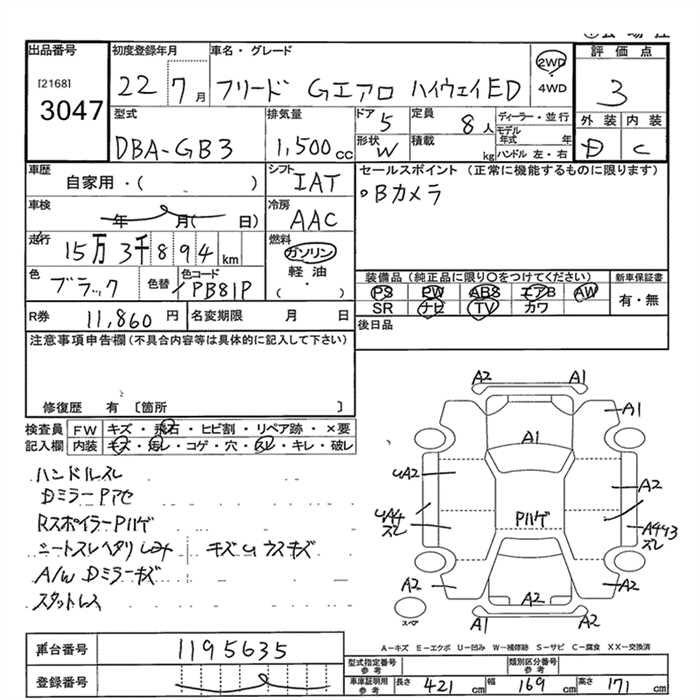 出品番号 初度登録年月 車名・グレード 2WD・4WD 評価点
[2168]
3047 22 7月 フリード Gエアロ ハイウェイED 3
型式 排気量 ドア 定員 ディーラー・並行 外装 内装
DBA-GB3 1,500cc 5 8人 モデル年式 年 D C
形状 W 積載 kg ハンドル 左・右
車歴 シフト セールスポイント (正常に機能するものに限ります)
自家用・( ) IAT °Bカメラ
車検 冷房
年 月( 日) AAC
走行 燃料
15万3千894km ガソリン
色 色替 色コード 軽油
ブラック PB81P ・( )
装備品(純正品に限り○をつけてください) 新車保証書
PS PW ABS エアB AW 有・無
SR ナビ TV カワ
R券 11,860円 名変期限 月 日
後日品
注意事項申告欄(不具合内容等は具体的に記入して下さい)
修復歴 有 〔箇所 〕
検査員 FW キズ・飛石・ヒビ割・リペア跡・×要
記入欄 内装 キズ・汚レ・コゲ・穴・スレ・キレ・破レ
ハンドルスレ
DミラーPアセ
RスポイラーPハゲ
シートスレヘタリシミ キズUウスキズ
A/W Dミラーキズ
スタットレス
A2 A1
A1 A1
UA2 A2
Pハゲ
UA4 スレ
スレ
A2 A2
A2
スペア A1 A2
A-キズ E-エクボ U-凹み W-補修跡 S-サビ C-腐食 XX-交換済
車台番号 1195635
型式指定番号 参考 類別区分番号 参考
登録番号
車庫証明用 参考 長さ 421cm 幅 169cm 高さ 171cm